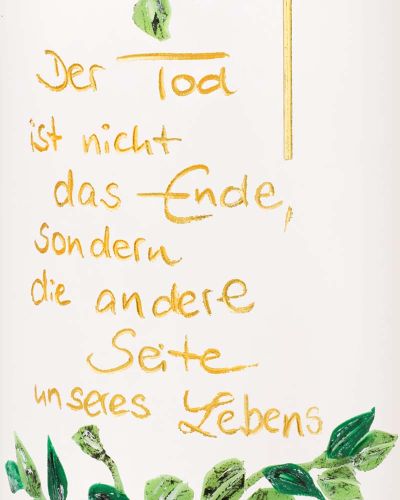 Der Tod
ist nicht
das Ende,
sondern
die andere
Seite
unseres Lebens